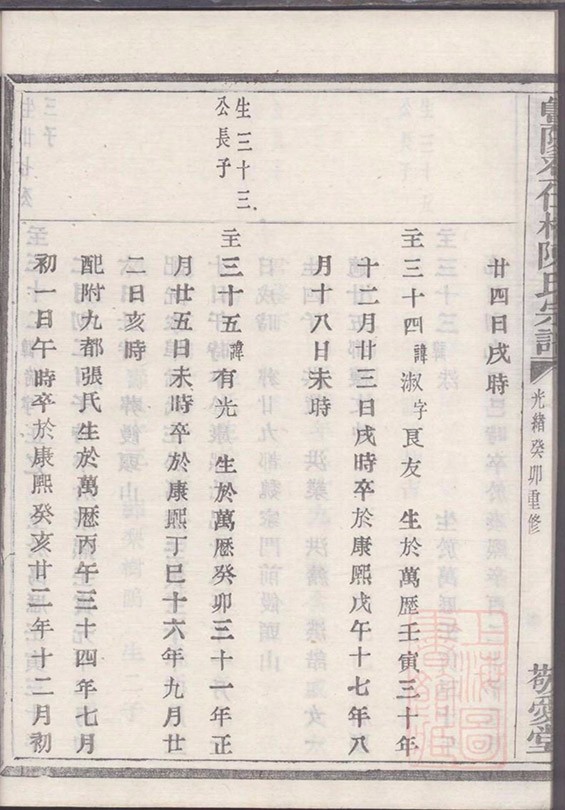 陳氏宗譜
光緒癸卯重修
敬愛堂
廿四日戌時
主三十四諱淑字良友 生於萬歷壬寅三十年
十二月廿三日戌時卒於康熙戊午十七年八
月十八日未時
生三十三
公長子
主三十五諱有光 生於萬歷癸卯三十一年正
月廿五日未時卒於康熙丁巳十六年九月廿
二日亥時
配附九都張氏生於萬歷丙午三十四年七月
初一日午時卒於康熙癸亥廿二年十二月初